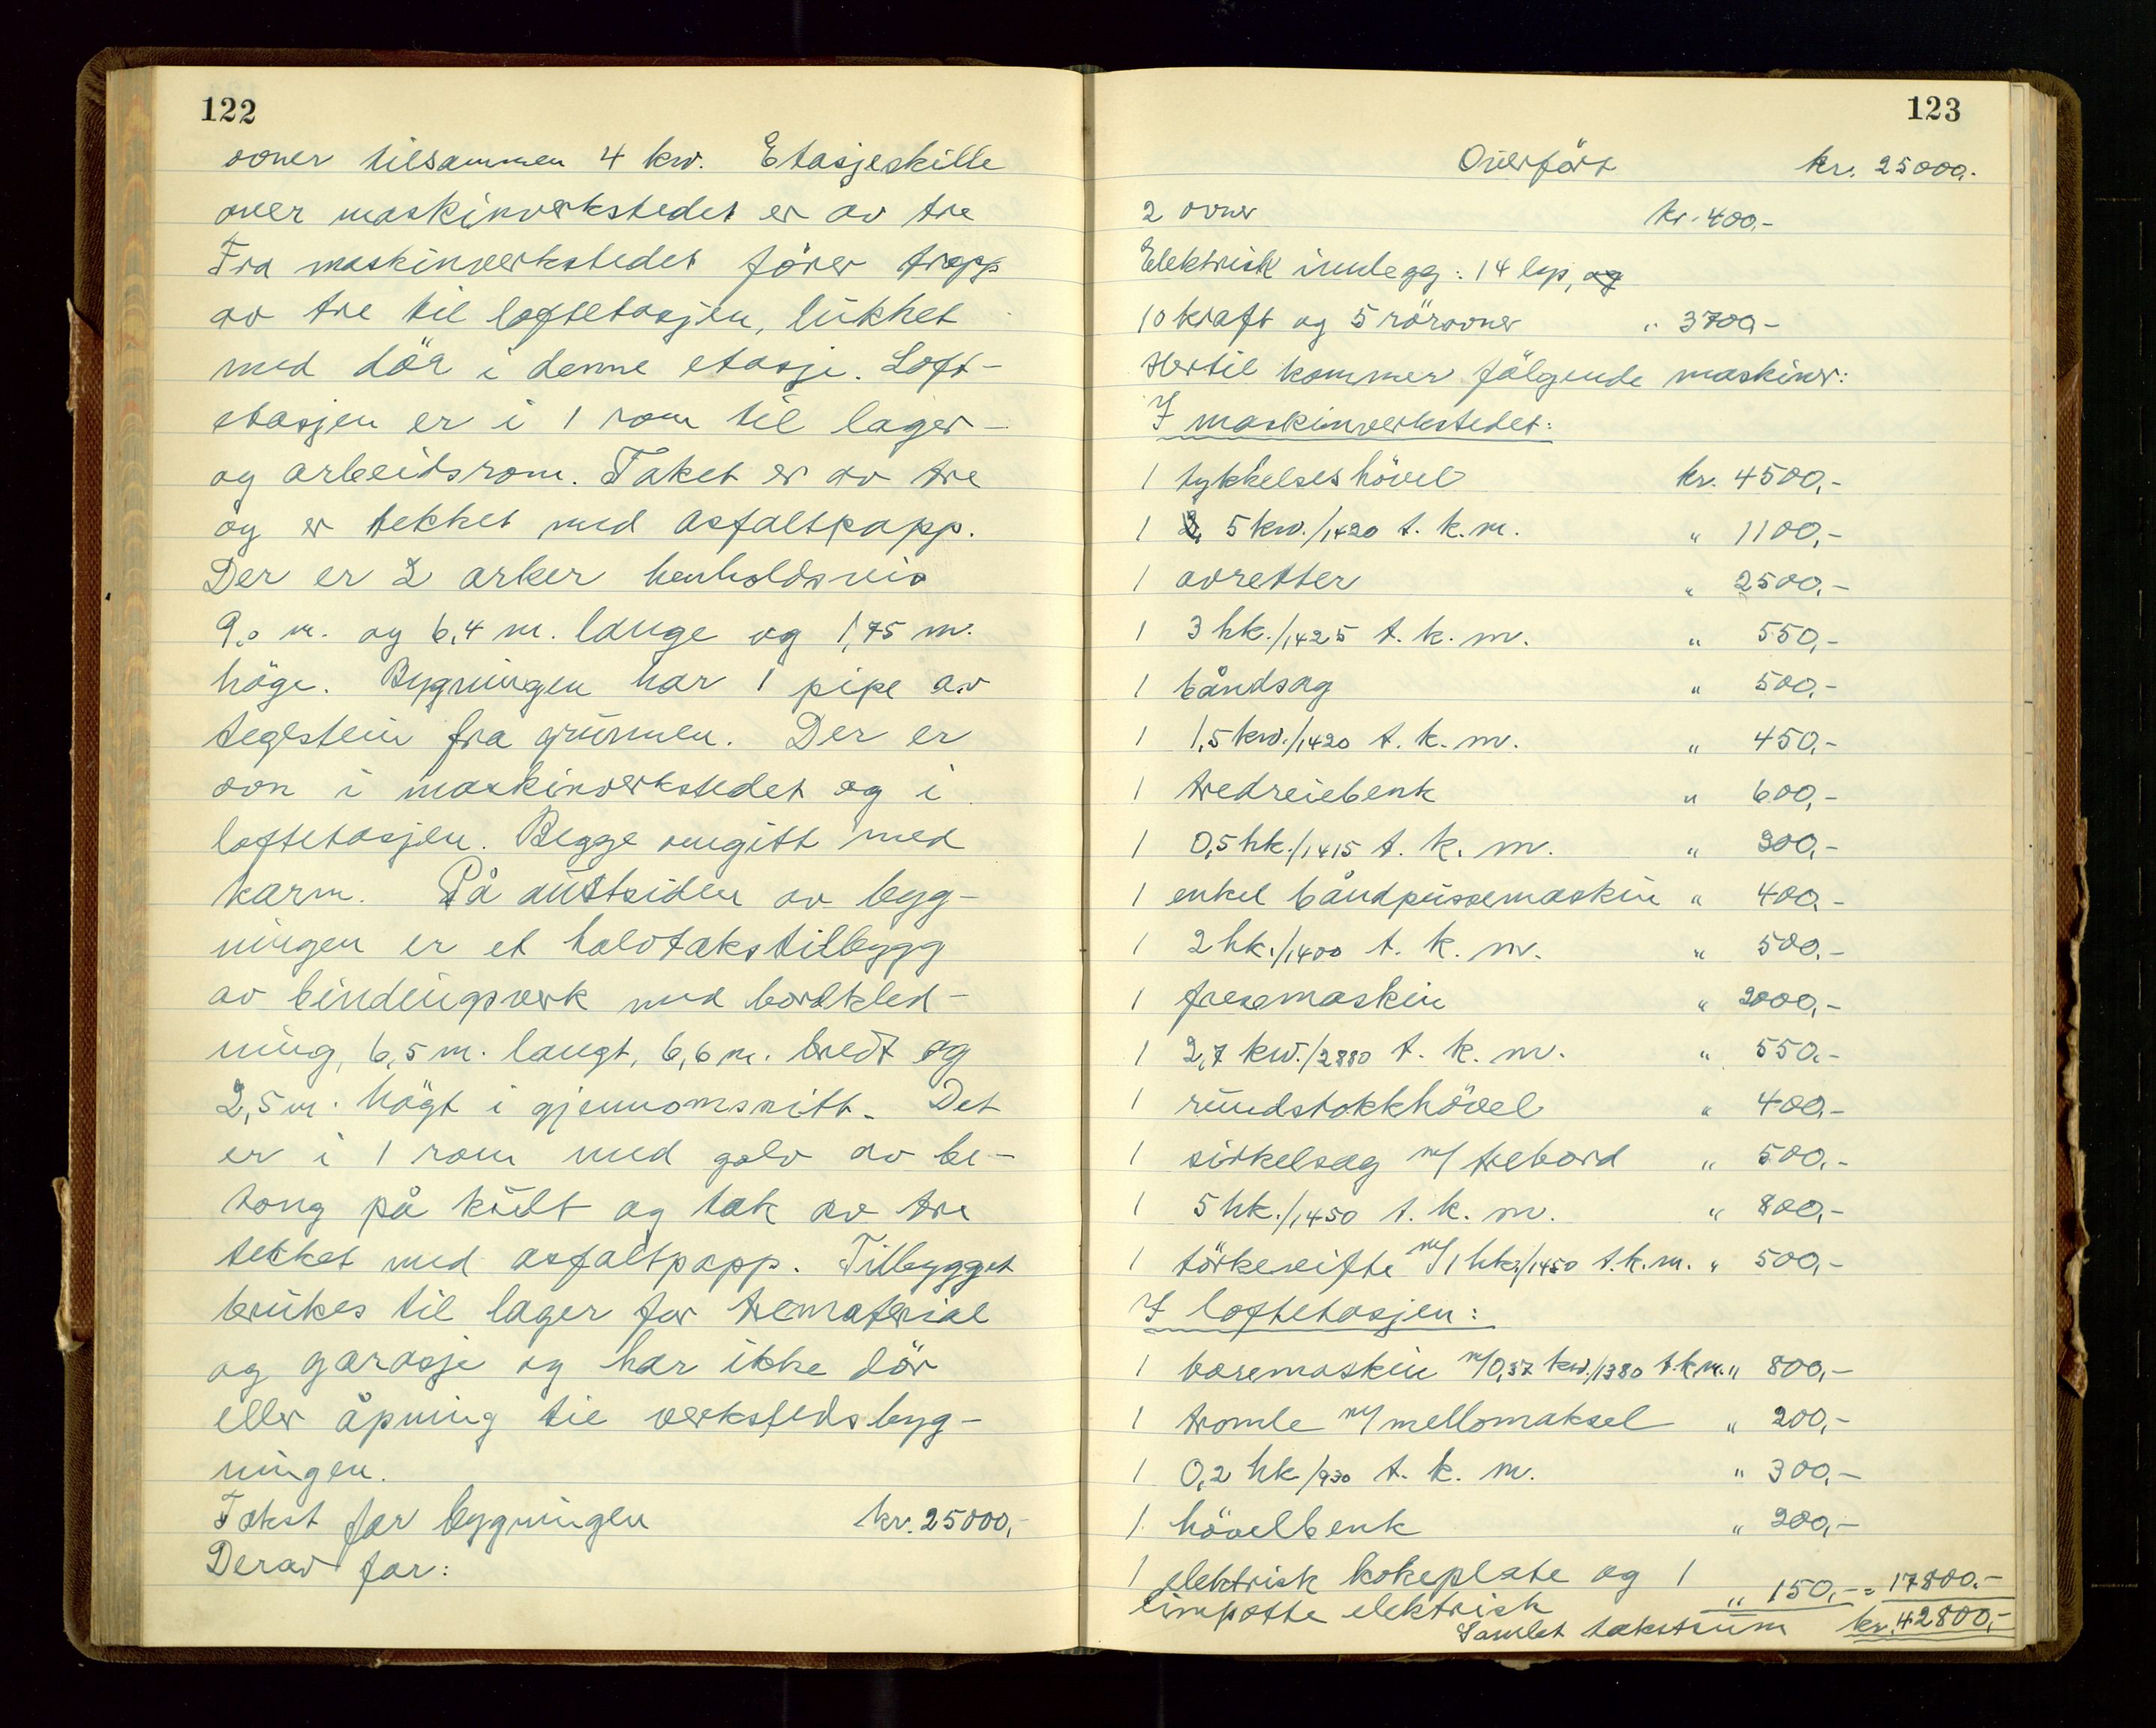 122
ovner tilsammen 4 kw. Etasjeskille
over maskinverkstedet er av tre
Fra maskinverkstedet förer trapp
av tre til loftetasjen, lukket
med dör i denne etasje. Loft-
etasjen er i 1 rom til lager-
og arbeidsrom. Taket er av tre
og er tekket med asfaltpapp.
Der er 2 arker henholdsvis
9,0 m. og 6,4 m. lange og 1,75 m.
höge. Bygningen har 1 pipe av
teglstein fra grunnen. Der er
ovn i maskinverkstedet og i
loftetasjen. Begge omgitt med
karm. På austsiden av byg-
ningen er et halvtakstilbygg
av bindingsverk med bordkled-
ning, 6,5 m. langt, 6,6 m. bredt og
2,5 m. högt i gjennomsnitt. Det
er i 1 rom med golv av be-
tong på kult og tak av tre
tekket med asfaltpapp. Tilbygget
brukes til lager for trematerial
og garasje og har ikke dör
eller åpning til verkstedsbyg-
ningen.
Takst for bygningen kr. 25000,-
Derav for:
123
Overfört kr. 25000.-
2 ovner kr. 400,-
Elektrisk innlegg: 14 lys, og
10 kraft og 5 rörovner " 3700,-
Hertil kommer fölgende maskiner:
I maskinverkstedet:
1 tykkelseshövel kr. 4500,-
1 5 kw./1420 t. k. m. " 1100,-
1 avretter " 2500,-
1 3 hk./1425 t. k. m. " 550,-
1 båndsag " 500,-
1 1,5 kw./1420 t. k. m. " 450,-
1 tredreiebenk " 600,-
1 0,5 hk./1415 t. k. m. " 300,-
1 enkel båndpussemaskin " 400.-
1 2 hk./1400 t. k. m. " 500.-
1 fresemaskin " 2000,-
1 2,7 kw./2880 t. k. m. " 550.-
1 rundstokkhövel " 400,-
1 sirkelsag m/ trebord " 500,-
1 5 hk./1450 t. k. m. " 800,-
1 törkevifte m/ 1 hk./1450 t. k. m. " 500,-
I loftetasjen:
1 boremaskin m/0,37 kw./1380 t. k. m. " 800,-
1 tromle m/ mellomaksel " 200,-
1 0,2 hk/930 t. k. m. " 300,-
1 hövelbenk " 200,-
1 elektrisk kokeplate og 1
limpotte elektrisk " 150,- = 17800.-
Samlet takstsum kr. 42800,-